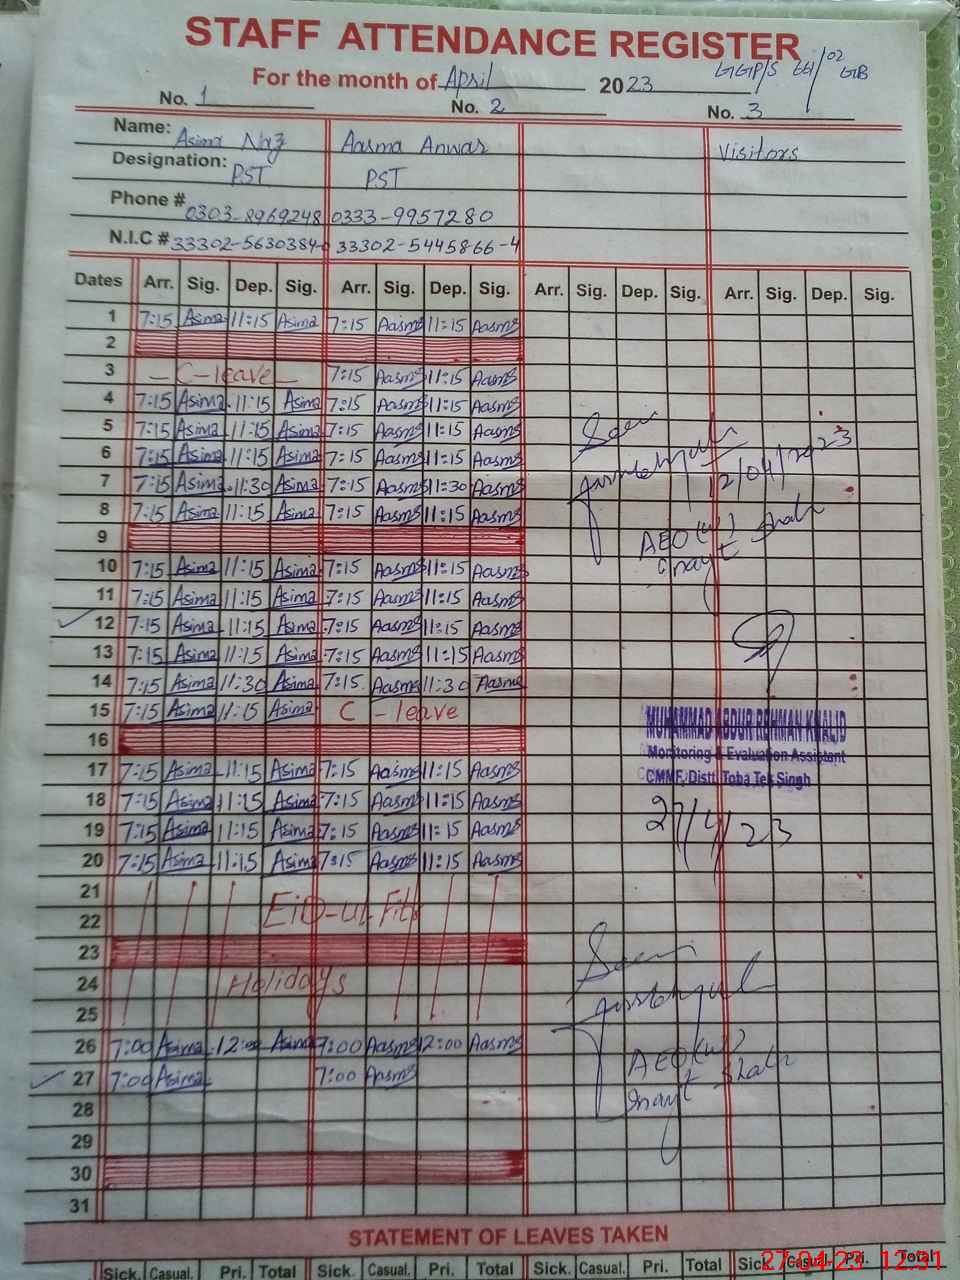 STAFF ATTENDANCE REGISTER
For the month of April 2023 GGP/S GB
No. 1 No. 2 No. 3
Name: Asima Naz Aasma Anwar Visitors
Designation: PST PST
Phone # 0303-8969248 0333-9957280
N.I.C # 33302-5630384- 33302-5445866-4
Dates Arr. Sig. Dep. Sig. Arr. Sig. Dep. Sig. Arr. Sig. Dep. Sig. Arr. Sig. Dep. Sig.
1 7:15 Asima 11:15 Asima 7:15 Aasma 11:15 Aasma
2
3 - C-leave - 7:15 Aasma 11:15 Aasma
4 7:15 Asima 11:15 Asima 7:15 Aasma 11:15 Aasma
5 7:15 Asima 11:15 Asima 7:15 Aasma 11:15 Aasma
6 7:15 Asima 11:15 Asima 7:15 Aasma 11:15 Aasma
7 7:15 Asima 11:30 Asima 7:15 Aasma 11:30 Aasma 12/04/2023
8 7:15 Asima 11:15 Asima 7:15 Aasma 11:15 Aasma
9 AEO(W) Shah
10 7:15 Asima 11:15 Asima 7:15 Aasma 11:15 Aasma
11 7:15 Asima 11:15 Asima 7:15 Aasma 11:15 Aasma
12 7:15 Asima 11:15 Asima 7:15 Aasma 11:15 Aasma
13 7:15 Asima 11:15 Asima 7:15 Aasma 11:15 Aasma
14 7:15 Asima 11:30 Asima 7:15 Aasma 11:30 Aasma
15 7:15 Asima 11:15 Asima C - leave
MUHAMMAD ABDUR REHMAN KHALID
16
Monitoring & Evaluation Assistant
17 7:15 Asima 11:15 Asima 7:15 Aasma 11:15 Aasma
CMMF, Distt. Toba Tek Singh
18 7:15 Asima 11:15 Asima 7:15 Aasma 11:15 Aasma
27/4/23
19 7:15 Asima 11:15 Asima 7:15 Aasma 11:15 Aasma
20 7:15 Asima 11:15 Asima 7:15 Aasma 11:15 Aasma
21
22 Eid-ul-Fitr
23
24 Holidays
25
26 7:00 Asima 12:00 Asima 7:00 Aasma 12:00 Aasma
27 7:00 Asima 7:00 Aasma AEO(W)
28 Shah
29
30
31
STATEMENT OF LEAVES TAKEN
Sick. Casual. Pri. Total Sick. Casual. Pri. Total Sick. Casual. Pri. Total Sick. Casual. Pri. Total
27-04-23 12:31